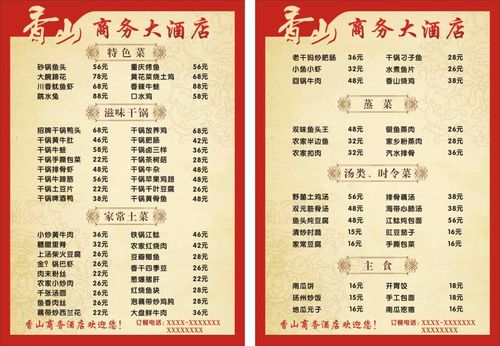 香山 商务大酒店
特色菜
砂锅鱼头 56元 重庆烤鱼 56元
大腕蹄花 78元 黄花菜烧土鸡 68元
川香鱿鱼虾 68元 香辣牛蛙 58元
跳水兔 88元 口水鸡 58元
滋味干锅
招牌干锅鸭头 68元 干锅放养鸡 68元
干锅黄牛肚 46元 干锅肥肠 42元
干锅牛蛙 58元 干锅卤三样 36元
干锅手撕包菜 22元 干锅茶树菇 28元
干锅排骨虾 48元 干锅牛杂 48元
干锅牛蹄筋 56元 干锅苹果鸡翅 48元
干锅土豆片 22元 干锅千叶豆腐 26元
干锅啤酒鸭 38元 干锅黄骨鱼 48元
家常土菜
小炒黄牛肉 36元 铁锅江鲶 46元
糖醋里脊 32元 农家红烧肉 42元
上汤柴火豆腐 22元 豆瓣鲫鱼 28元
金?锅巴虾 36元 香干四季豆 26元
肉末粉丝 22元 葱爆猪肝 22元
农家小炒肉 26元 红烧鱼块 28元
千张汤圆 28元 泡藕带炒鸡肫 28元
鱼香肉丝 22元 大盘鲜牛肉 36元
藕带炒西兰花 22元
香山商务酒店欢迎您! 订餐电话:XXXX-XXXXXXX
XXXXXXXX
香山 商务大酒店
老干妈炒肥肠 36元 干锅刁子鱼 28元
小鱼小虾 32元 水煮鱼片 26元
回锅牛肉 48元 香山烧鸡 38元
蒸菜
双味鱼头王 48元 银鱼蒸肉 26元
农家半边鱼 32元 家乡粉蒸肉 28元
农家扣肉 32元 汽水排骨 36元
汤类、时令菜
野菌土鸡汤 56元 排骨藕汤 38元
双元筋骨汤 48元 海带心肺汤 38元
鱼头炖豆腐 48元 江鲶炖包面 56元
清炒时蔬 15元 豇豆茄子 16元
家常豆腐 16元 手撕包菜 16元
主食
南瓜饼 16元 开胃饺 18元
扬州炒饭 15元 手工包面 18元
地瓜元子 16元 南瓜疙瘩 16元
香山商务酒店欢迎您! 订餐电话:XXXX-XXXXXXX
XXXXXXXX